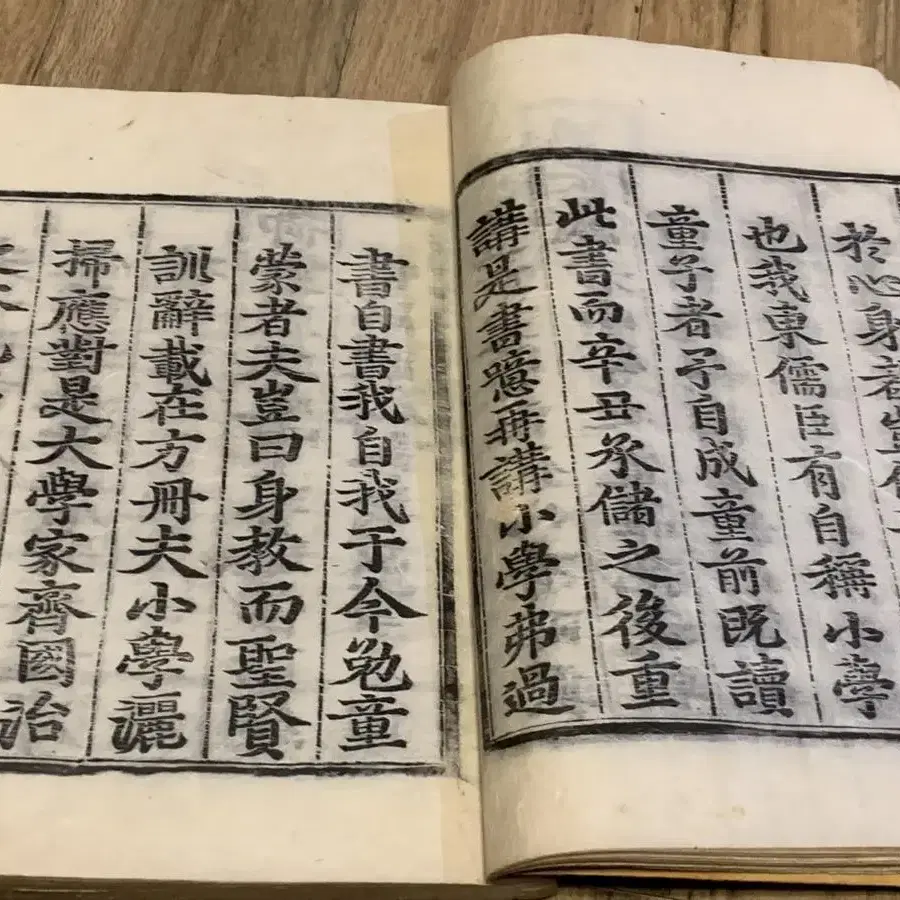 於心身者豈
也我東儒臣有自稱小學
童子者予自成童前既讀
此書而辛丑承儲之後重
講是書噫再講小學弗過
書自書我自我于今勉童
蒙者夫豈曰身教而聖賢
訓辭載在方冊夫小學灑
掃應對是大學家齊國治